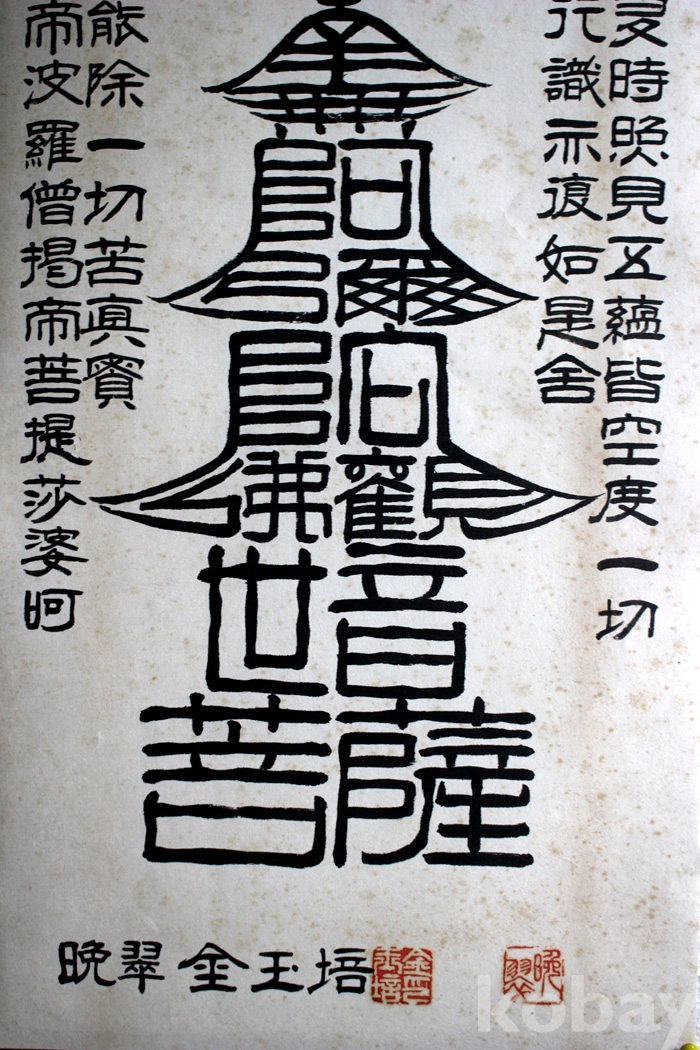 多時照見五蘊皆空度一切
行識亦復如是舍
南無阿彌陀佛觀世音菩薩
能除一切苦真實
帝波羅僧揭帝菩提莎婆呵
晩翠 金玉培
kobay